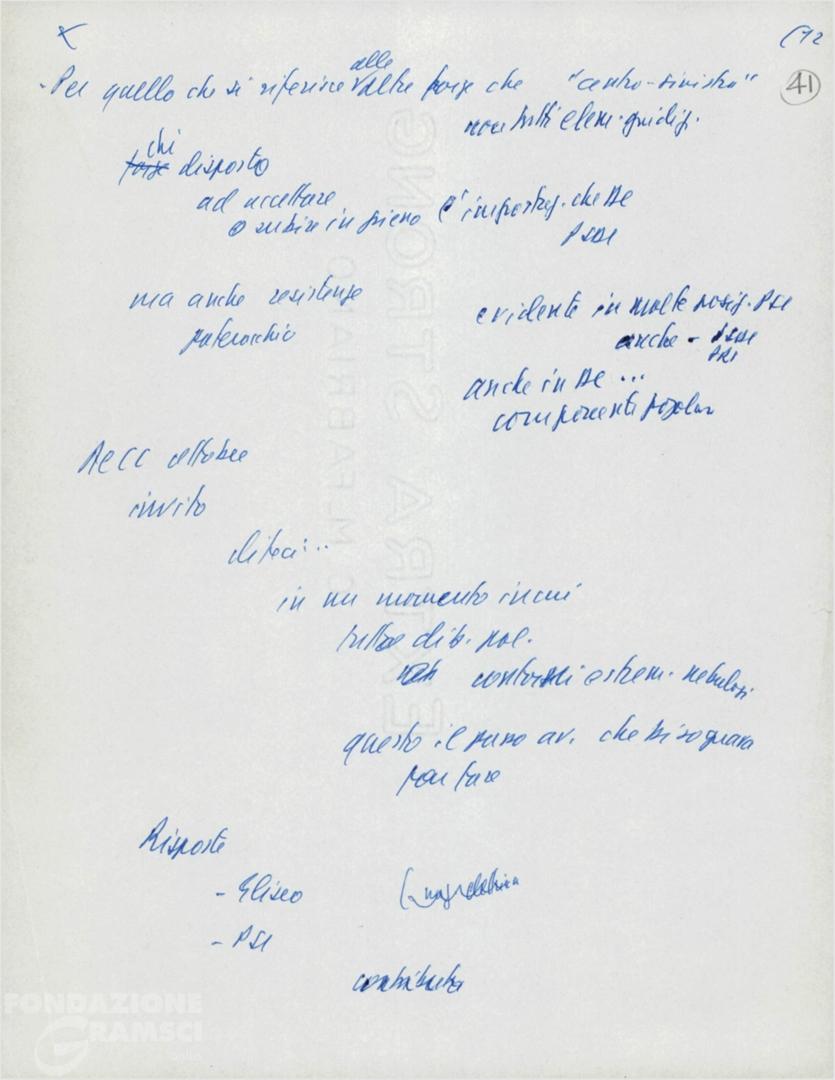 (12
41
- Per quello che si riferisce alle altre forze che "centro-sinistra"
non tutti elem. giudiz.
chi
forze disposto
ad accettare
o subire in pieno
È importaz. che DC
PSDI
ma anche resistenze
paterocchio
evidente in molte posiz. PSI
anche - PSDI
PRI
anche in DC ...
componenti popolari
Al CC ottobre
invito
diteci...
in un momento in cui
tutto dib. pol.
contorni estrem. nebulosi
questo il passo av. che bisognava
far fare
Risposte
- Eliseo
- PSI
contributo
FONDAZIONE
GRAMSCI
EXTRA STRONG
C. M. FABRIANO